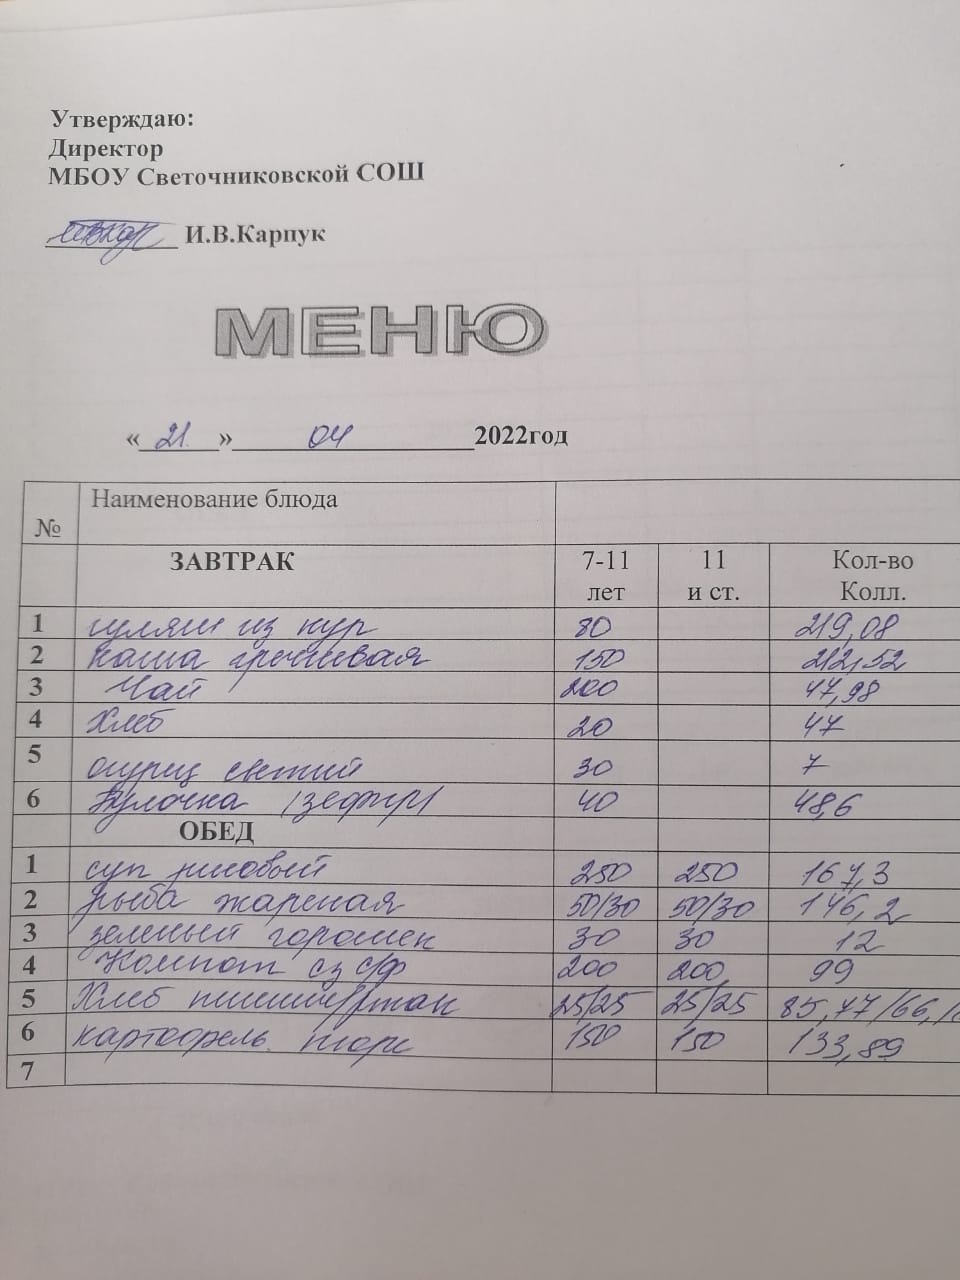 Утверждаю:
Директор
МБОУ Светочниковской СОШ
И.В.Карпук
МЕНЮ
« 21 » 04 2022год
№ Наименование блюда
ЗАВТРАК 7-11 лет 11 и ст. Кол-во Колл.
1 гуляш из кур 80 219,08
2 каша гречневая 150 212,52
3 Чай 200 47,98
4 Хлеб 20 47
5 огурец свежий 30 7
6 Булочка (зефир) 40 48,6
ОБЕД
1 суп рисовый 250 250 167,3
2 Рыба жареная 50/30 50/30 146,2
3 зеленый горошек 30 30 12
4 Компот из с/ф 200 200 99
5 Хлеб пшени/ржан 25/25 25/25 85,47/66,
6 картофель пюре 150 150 133,89
7